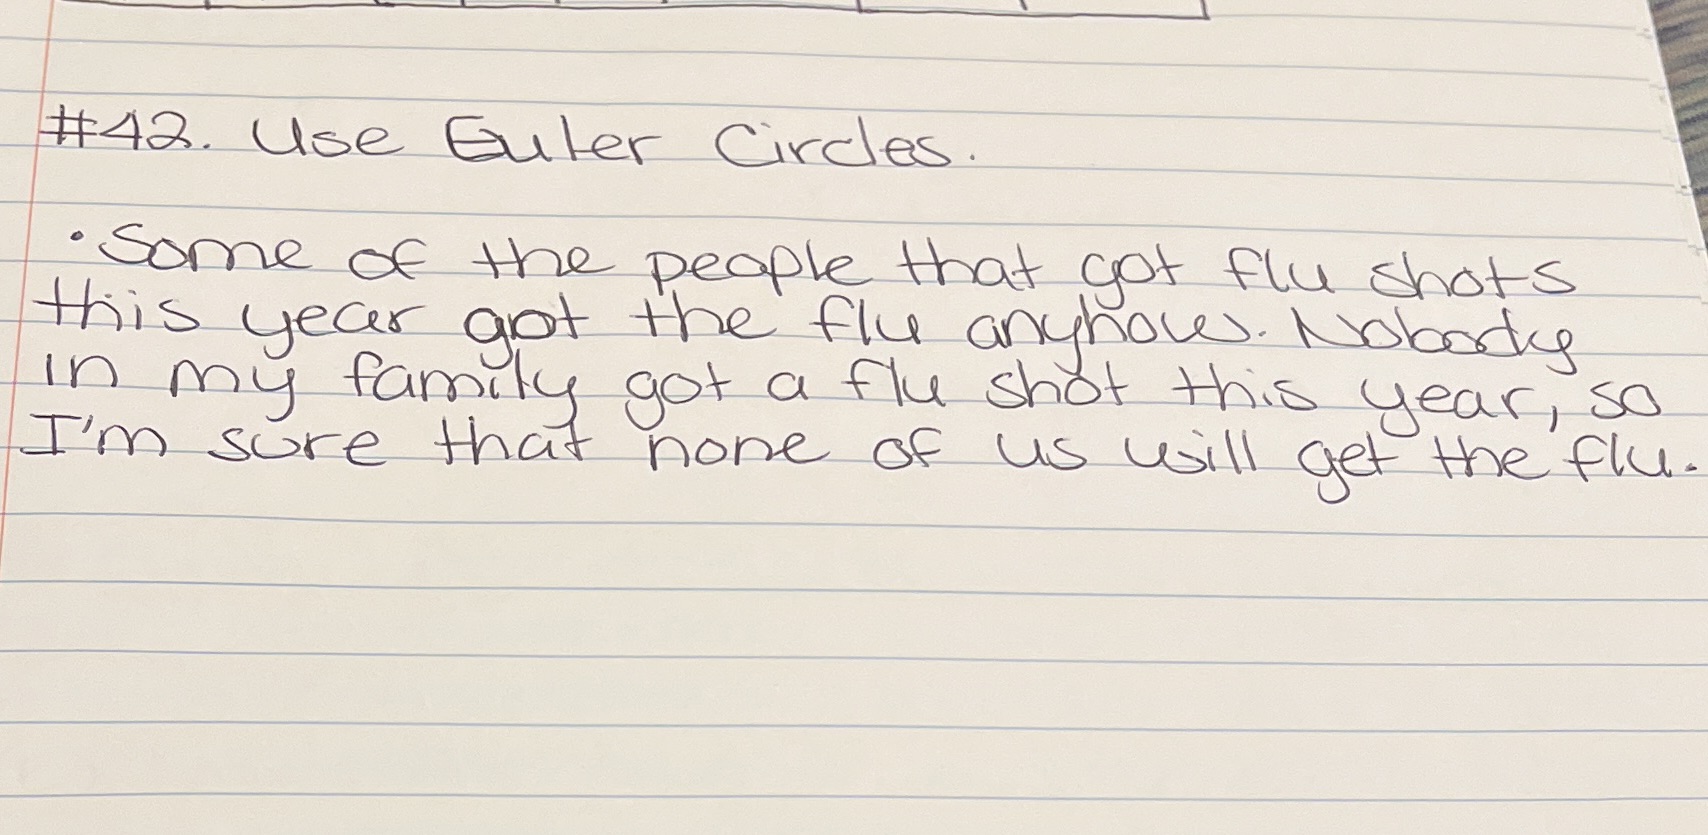 #42. Use Euler Circles.
• Some of the people that got flu shots
this year got the flu anyhow. Nobody
in my family got a flu shot this year, so
I'm sure that none of us will get the flu.